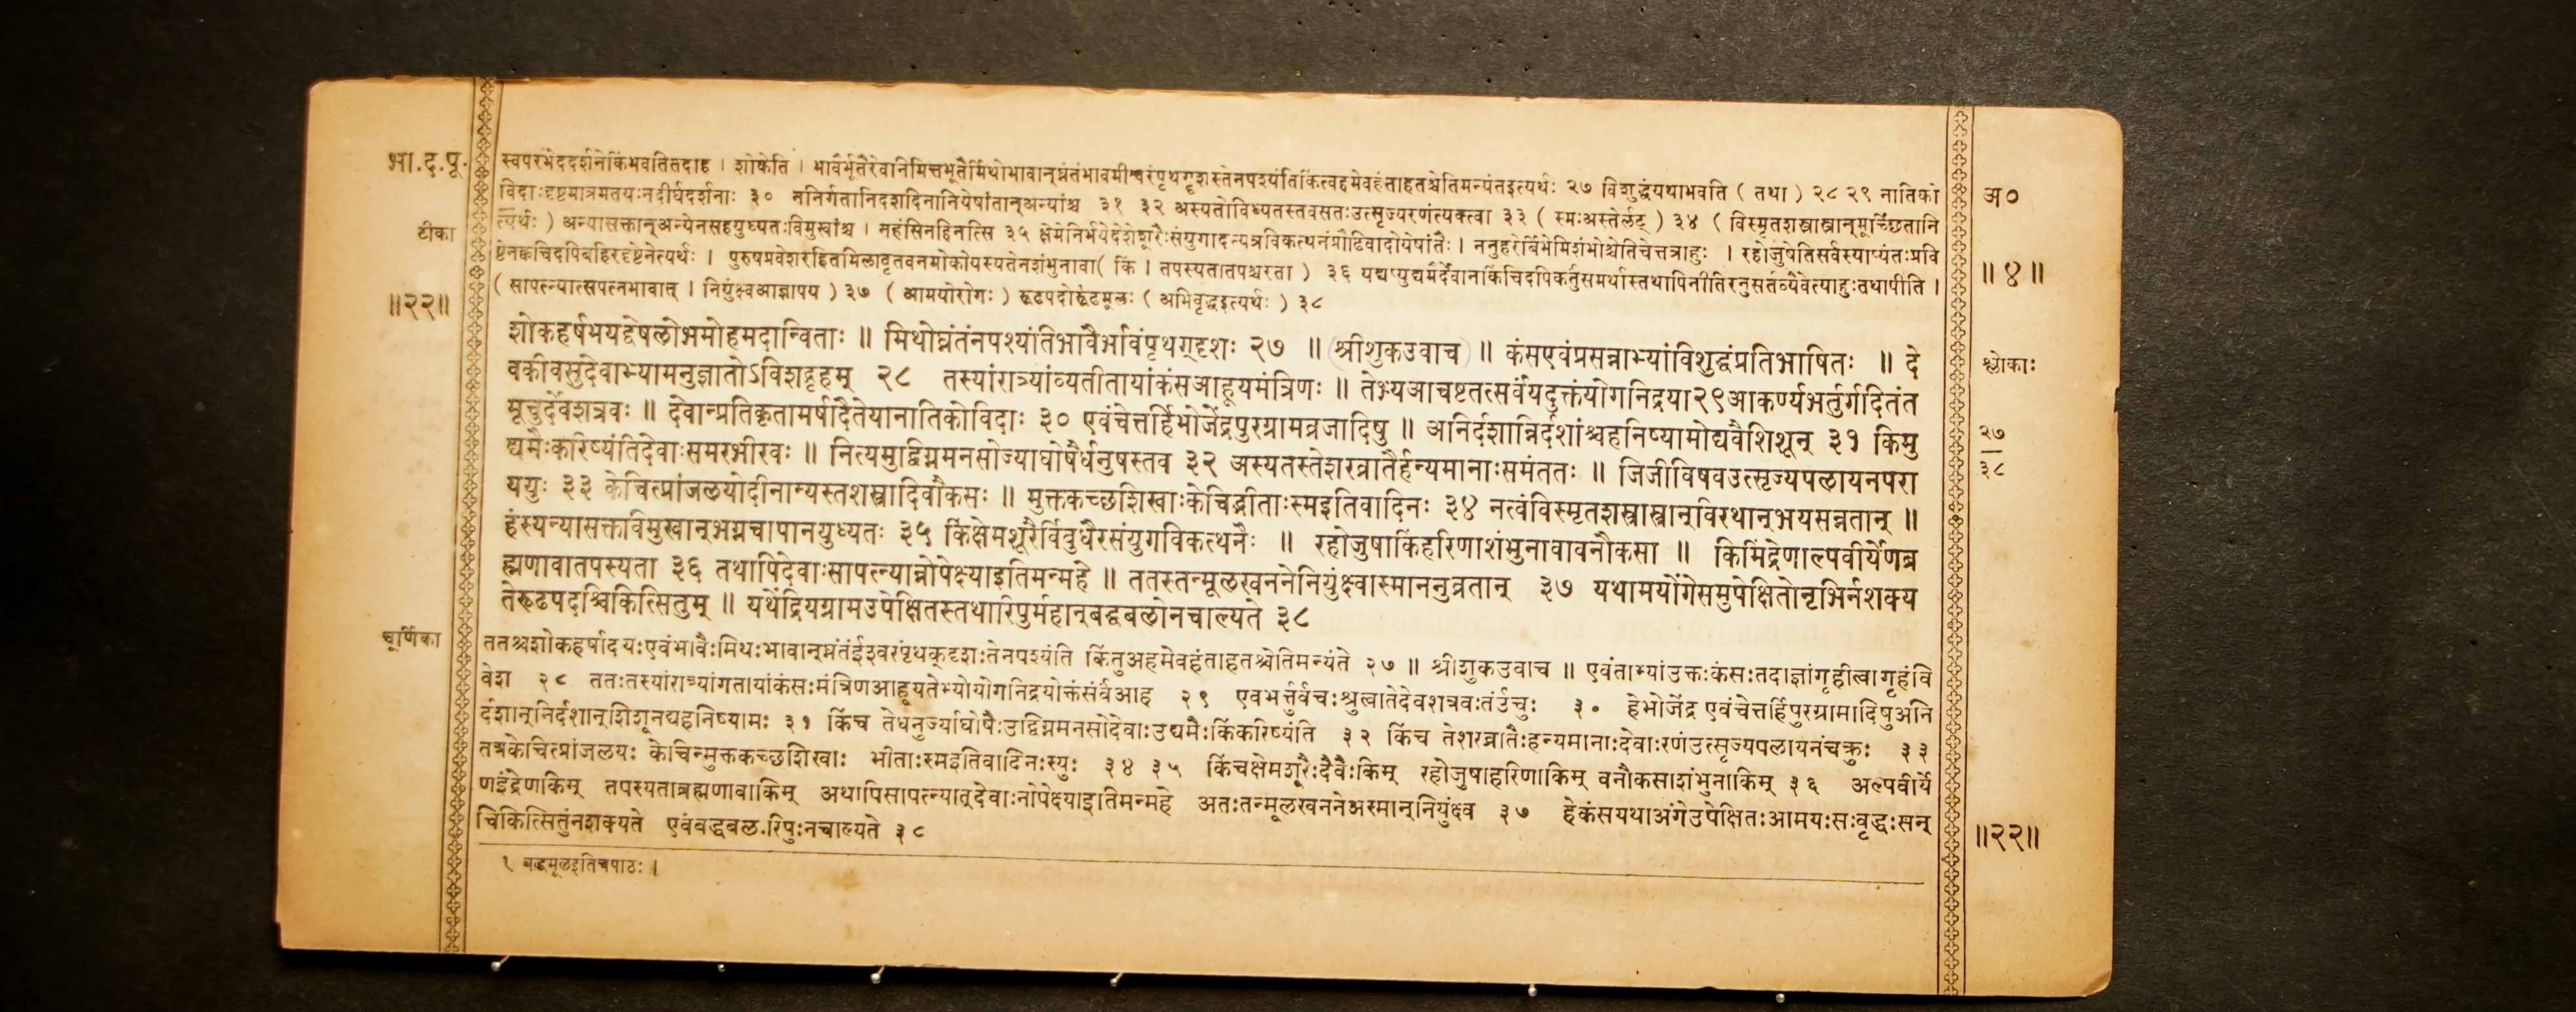 भा.द.पू.
टीका
॥२२॥
स्वपरभेददर्शनेकिंभवतितदाह । शोकेति । भावैर्भूतैरेवानिमित्तभूतैर्मिथोभावान्घ्नंतंभावमीश्वरंपृथग्दृशस्तेनपश्यंतिकिंत्वहमेवहंताहतश्चेतिमन्यंतइत्यर्थः २७ विशुद्धंयथाभवति ( तथा ) २८ २९ नातिको
विदाःदृष्टमात्रमतयःनदीर्घदर्शनाः ३० ननिर्गतानिदशदिनानियेषांतान्अन्यांश्च ३१ ३२ अस्यतोविध्यतस्तवसतःउत्सृज्यरणंत्यक्त्वा ३३ ( स्मःअस्तेर्लट् ) ३४ ( विस्मृतशस्त्रास्त्रान्मूर्च्छितानि
त्यर्थः ) अन्यासक्तान्अन्येनसहयुध्यतःविमुखांश्च । नहंसिनहिनत्सि ३५ क्षेमेनिर्भयेदेशेशूरैःसंयुगादन्यत्रविकत्थनंप्रौढिवादोयेषांतैः । ननुहरेर्बिभेमिशंभोश्चेतिचेत्तत्राहुः । रहोजुषेतिसर्वस्याप्यंतःप्रवि
ष्टेनक्वचिदपिबहिरदृष्टेनेत्यर्थः । पुरुषप्रवेशरहितमिलावृतवनमोकोयस्यतेनशंभुनावा ( किं । तपस्यतातपश्चरता ) ३६ यद्यप्युद्यमैर्देवानकिंचिदपिकर्तुंसमर्थास्तथापिनीतिरनुसर्तव्यैवेत्याहुःतथापीति ।
( सापत्न्यात्सपत्नभावात् । नियुंक्ष्वआज्ञापय ) ३७ ( आमयोरोगः ) रूढपदोरूढमूलः ( अभिवृद्धइत्यर्थः ) ३८
शोकहर्षभयद्वेषलोभमोहमदान्विताः ॥ मिथोघ्नंतंनपश्यंतिभावैर्भावंपृथग्दृशः २७ ॥ श्रीशुकउवाच ॥ कंसएवंप्रसन्नाभ्यांविशुद्धंप्रतिभाषितः ॥ दे
वकीवसुदेवाभ्यामनुज्ञातोऽविशद्गृहम् २८ तस्यांरात्र्यांव्यतीतायांकंसआहूयमंत्रिणः ॥ तेभ्यआचष्टतत्सर्वंयदुक्तंयोगनिद्रया२९आकर्ण्यभर्तुर्गदितंत
मूचुर्देवशत्रवः ॥ देवान्प्रतिकृतामर्षादैतेयानातिकोविदाः ३० एवंचेत्तर्हिभोजेंद्रपुरग्रामव्रजादिषु ॥ अनिर्दशान्निर्दशांश्चहनिष्यामोद्यवैशिशून् ३१ किमु
द्यमैःकरिष्यंतिदेवाःसमरभीरवः ॥ नित्यमुद्विग्नमनसोज्याघोषैर्धनुषस्तव ३२ अस्यतस्तेशरव्रातैर्हन्यमानाःसमंततः ॥ जिजीविषवउत्सृज्यपलायनपरा
ययुः ३३ केचित्प्रांजलयोदीनान्यस्तशस्त्रादिवौकसः ॥ मुक्तकच्छशिखाःकेचिद्भीताःस्मइतिवादिनः ३४ नत्वंविस्मृतशस्त्रास्त्रान्विरथान्भयसन्नतान् ॥
हंस्यन्यासक्तविमुखान्भग्नचापानयुध्यतः ३५ किंक्षेमशूरैर्विबुधैरसंयुगविकत्थनैः ॥ रहोजुषाकिंहरिणाशंभुनावावनौकसा ॥ किमिंद्रेणाल्पवीर्येणब्र
ह्मणावातपस्यता ३६ तथापिदेवाःसापत्न्यान्नोपेक्ष्याइतिमन्महे ॥ ततस्तन्मूलखननेनियुंक्ष्वास्माननुव्रतान् ३७ यथामयोंगेसमुपेक्षितोनृभिर्नशक्य
तेरूढपदश्चिकित्सितुम् ॥ यथेंद्रियग्रामउपेक्षितस्तथारिपुर्महान्बद्धबलोनचाल्यते ३८
चूर्णिका
ततश्चशोकहर्षादयःएवंभावैःमिथःभावान्घ्नंतंईश्वरंपृथक्दृशःतेनपश्यंति किंनुअहमेवहंताहतश्चेतिमन्यंते २७ ॥ श्रीशुकउवाच ॥ एवंताभ्यांउक्तःकंसःतदाज्ञांगृहीत्वागृहंवि
वेश २८ ततःतस्यांरात्र्यांगतायांकंसःमंत्रिणआहूयतेभ्योयोगनिद्रयोक्तंसर्वंआह २९ एवंभर्त्तुर्वचःश्रुत्वातेदेवशत्रवःतंऊचुः ३० हेभोजेंद्र एवंचेत्तर्हिपुरग्रामादिषुअनि
र्दशान्निर्दशान्शिशून्द्यहनिष्यामः ३१ किंच तेधनुर्ज्याघोषैःउद्विग्नमनसोदेवाःउद्यमैःकिंकरिष्यंति ३२ किंच तेशरव्रातैःहन्यमानाःदेवाःरणंउत्सृज्यपलायनंचक्रुः ३३
तत्रकेचित्प्रांजलयः केचिन्मुक्तकच्छशिखाः भीताःस्मइतिवादिनःस्युः ३४ ३५ किंचक्षेमशूरैःदेवैःकिम् रहोजुषाहरिणाकिम् वनौकसाशंभुनाकिम् ३६ अल्पवीर्ये
णइंद्रेणकिम् तपस्यताब्रह्मणावाकिम् अथापिसापत्न्यात्देवाःनोपेक्ष्याइतिमन्महे अतःतन्मूलखननेअस्मान्नियुंक्ष्व ३७ हेकंसयथाअंगेउपेक्षितःआमयःसःवृद्धःसन्
चिकित्सितुंनशक्यते एवंबद्धबल.रिपुःनचाल्यते ३८
१ बद्धमूलइतिचपाठः ।
अ०
॥४॥
श्लोकाः
२७
३८
॥२२॥